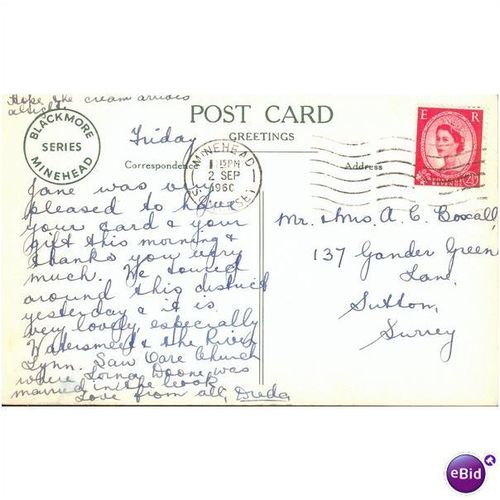 Hope the cream arrives
alright.
BLACKMORE
SERIES
MINEHEAD
POST CARD
GREETINGS
Friday
Correspondence
Address
MINEHEAD
1 15PM
2 SEP
1960
SOMERSET
E R
Jane was very
pleased to have
your card & your
gift this morning &
thanks you very
much. We toured
around this district
yesterday & it is
very lovely, especially
Watersmeet & the River
Lynn. Saw Oare Church
where Lorna Doone was
married in the book
Love from all, Dreda
Mr. & Mrs. A. C. Boxall,
137 Gander Green
Lane,
Sutton,
Surrey
eBid